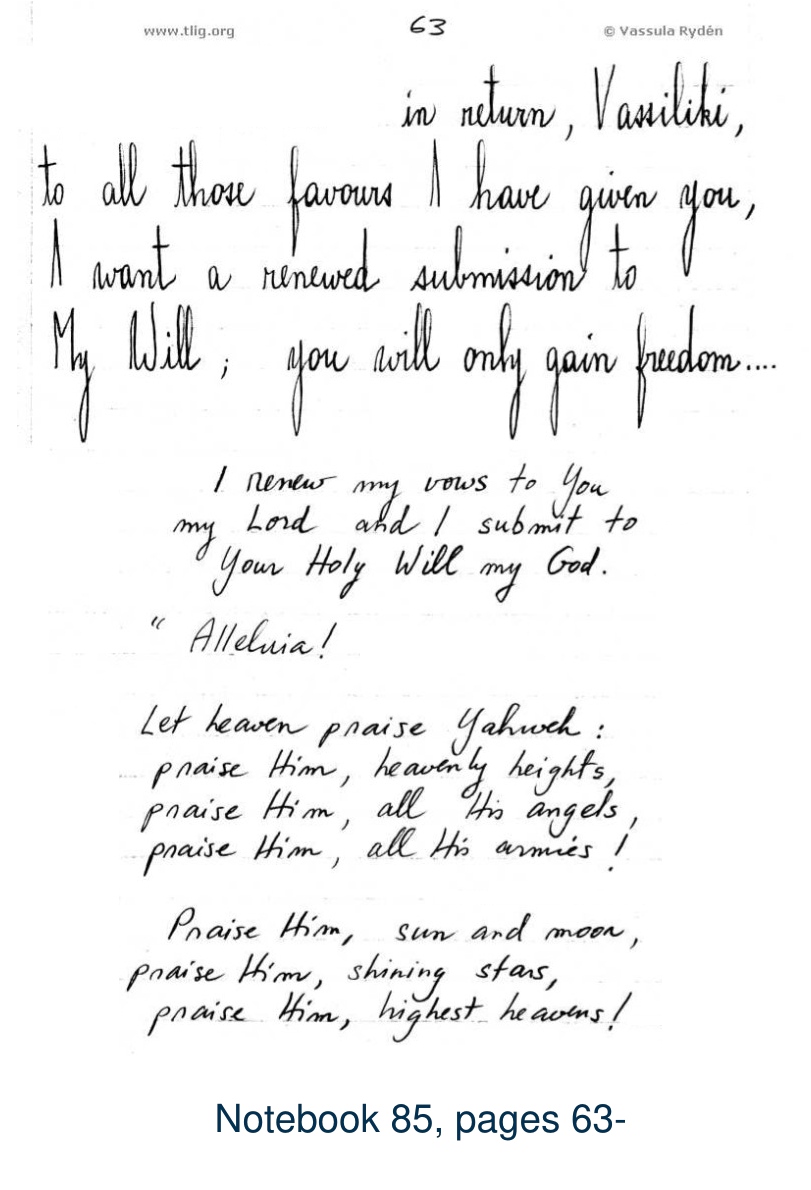 www.tlig.org 63 © Vassula Rydén
in return, Vassiliki,
to all those favours I have given you,
I want a renewed submission to
My Will ; you will only gain freedom....
I renew my vows to You
my Lord and I submit to
Your Holy Will my God.
" Alleluia!
Let heaven praise Yahweh :
praise Him, heavenly heights,
praise Him, all His angels,
praise Him, all His armies !
Praise Him, sun and moon,
praise Him, shining stars,
praise Him, highest heavens!
Notebook 85, pages 63-